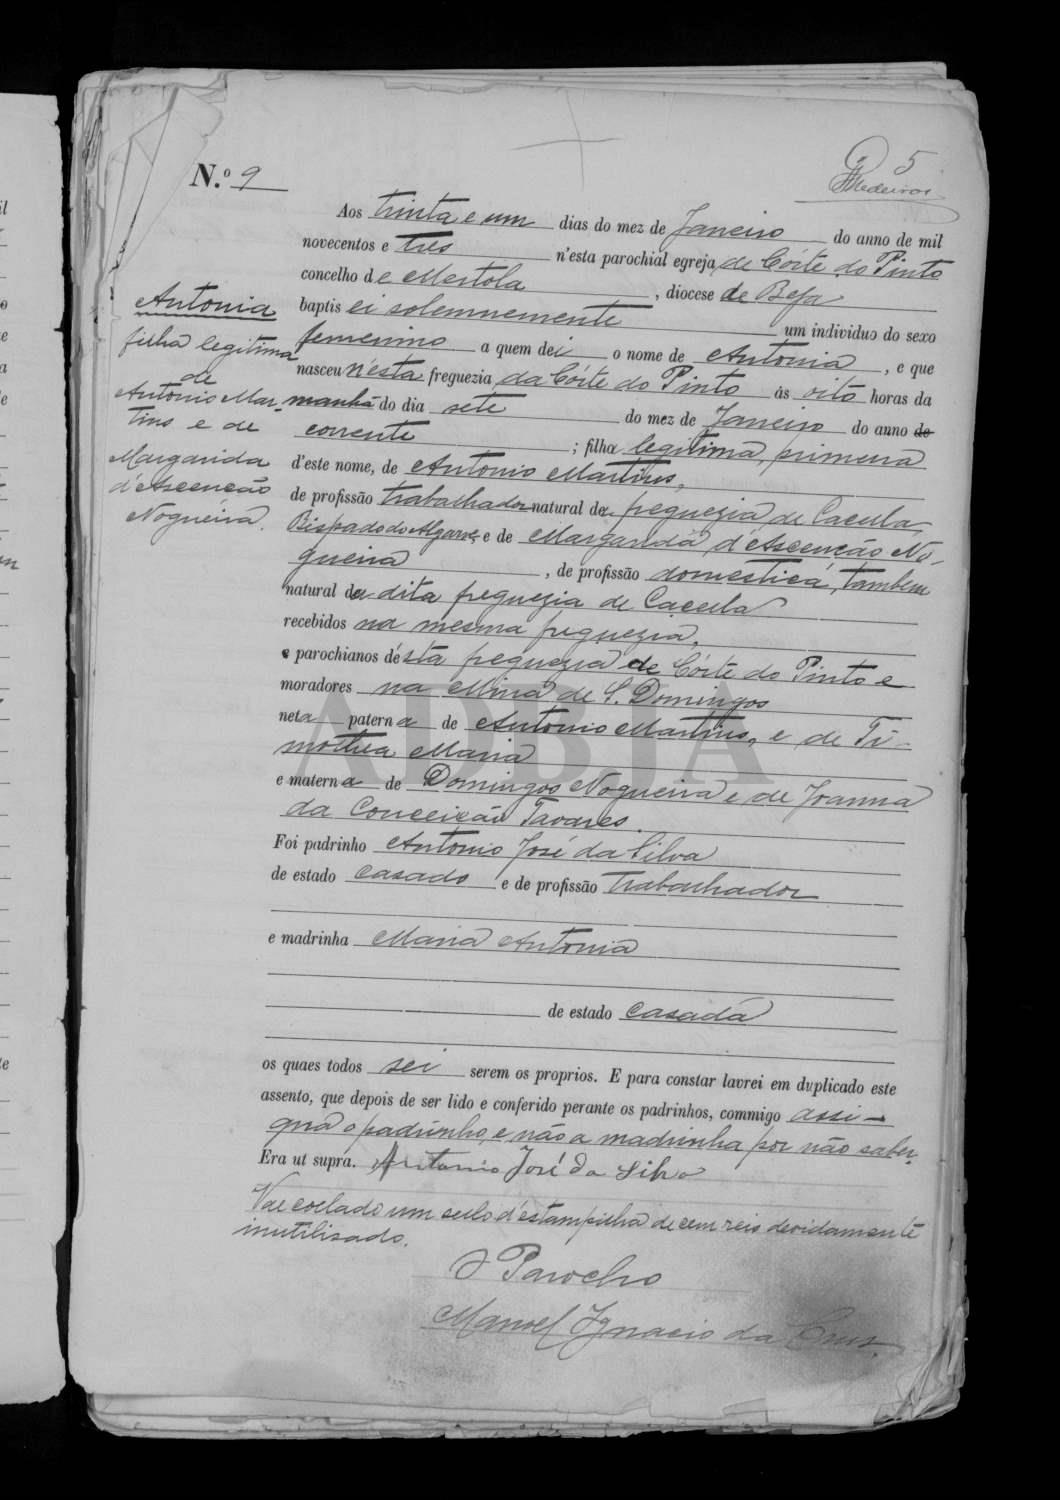 5
Medeiros
N.º 9
Aos trinta e um dias do mez de Janeiro do anno de mil
novecentos e tres n'esta parochial egreja de Córte do Pinto
concelho de Mertola, diocese de Beja
baptisei solemnemente um individuo do sexo
femenino a quem dei o nome de Antonia, e que
nasceu n'ésta freguezia da Córte do Pinto ás oito horas da
manhã do dia sete do mez de Janeiro do anno de
corrente; filha legitima, primeira
d'este nome, de Antonio Martins,
de profissão trabalhador natural da freguezia de Cacella
Bispado do Algarve, e de Margarida d'Ascenção No-
gueira, de profissão domestica, tambem
natural da dita freguezia de Cacella
recebidos na mesma freguezia,
e parochianos d'ésta freguezia de Córte do Pinto e
moradores na Mina de S. Domingos
neta paterna de Antonio Martins, e de Ti-
mothea Maria
e materna de Domingos Nogueira e de Joanna
da Conceição Tavares.
Foi padrinho Antonio José da Silva
de estado casado e de profissão trabalhador
e madrinha Maria Antonia
de estado casada
os quaes todos sei serem os proprios. E para constar lavrei em duplicado este
assento, que depois de ser lido e conferido perante os padrinhos, commigo assi-
gna o padrinho, e não a madrinha por não saber.
Era ut supra. Antonio José da Silva
Vae collado um sello d'estampilha de cem reis devidamente
inutilisado.
O Parocho
Manoel Ignacio da Cruz.
Antonia
filha legitima
de
Antonio Mar-
tins e de
Margarida
d'Ascenção
Nogueira.
ADBJA